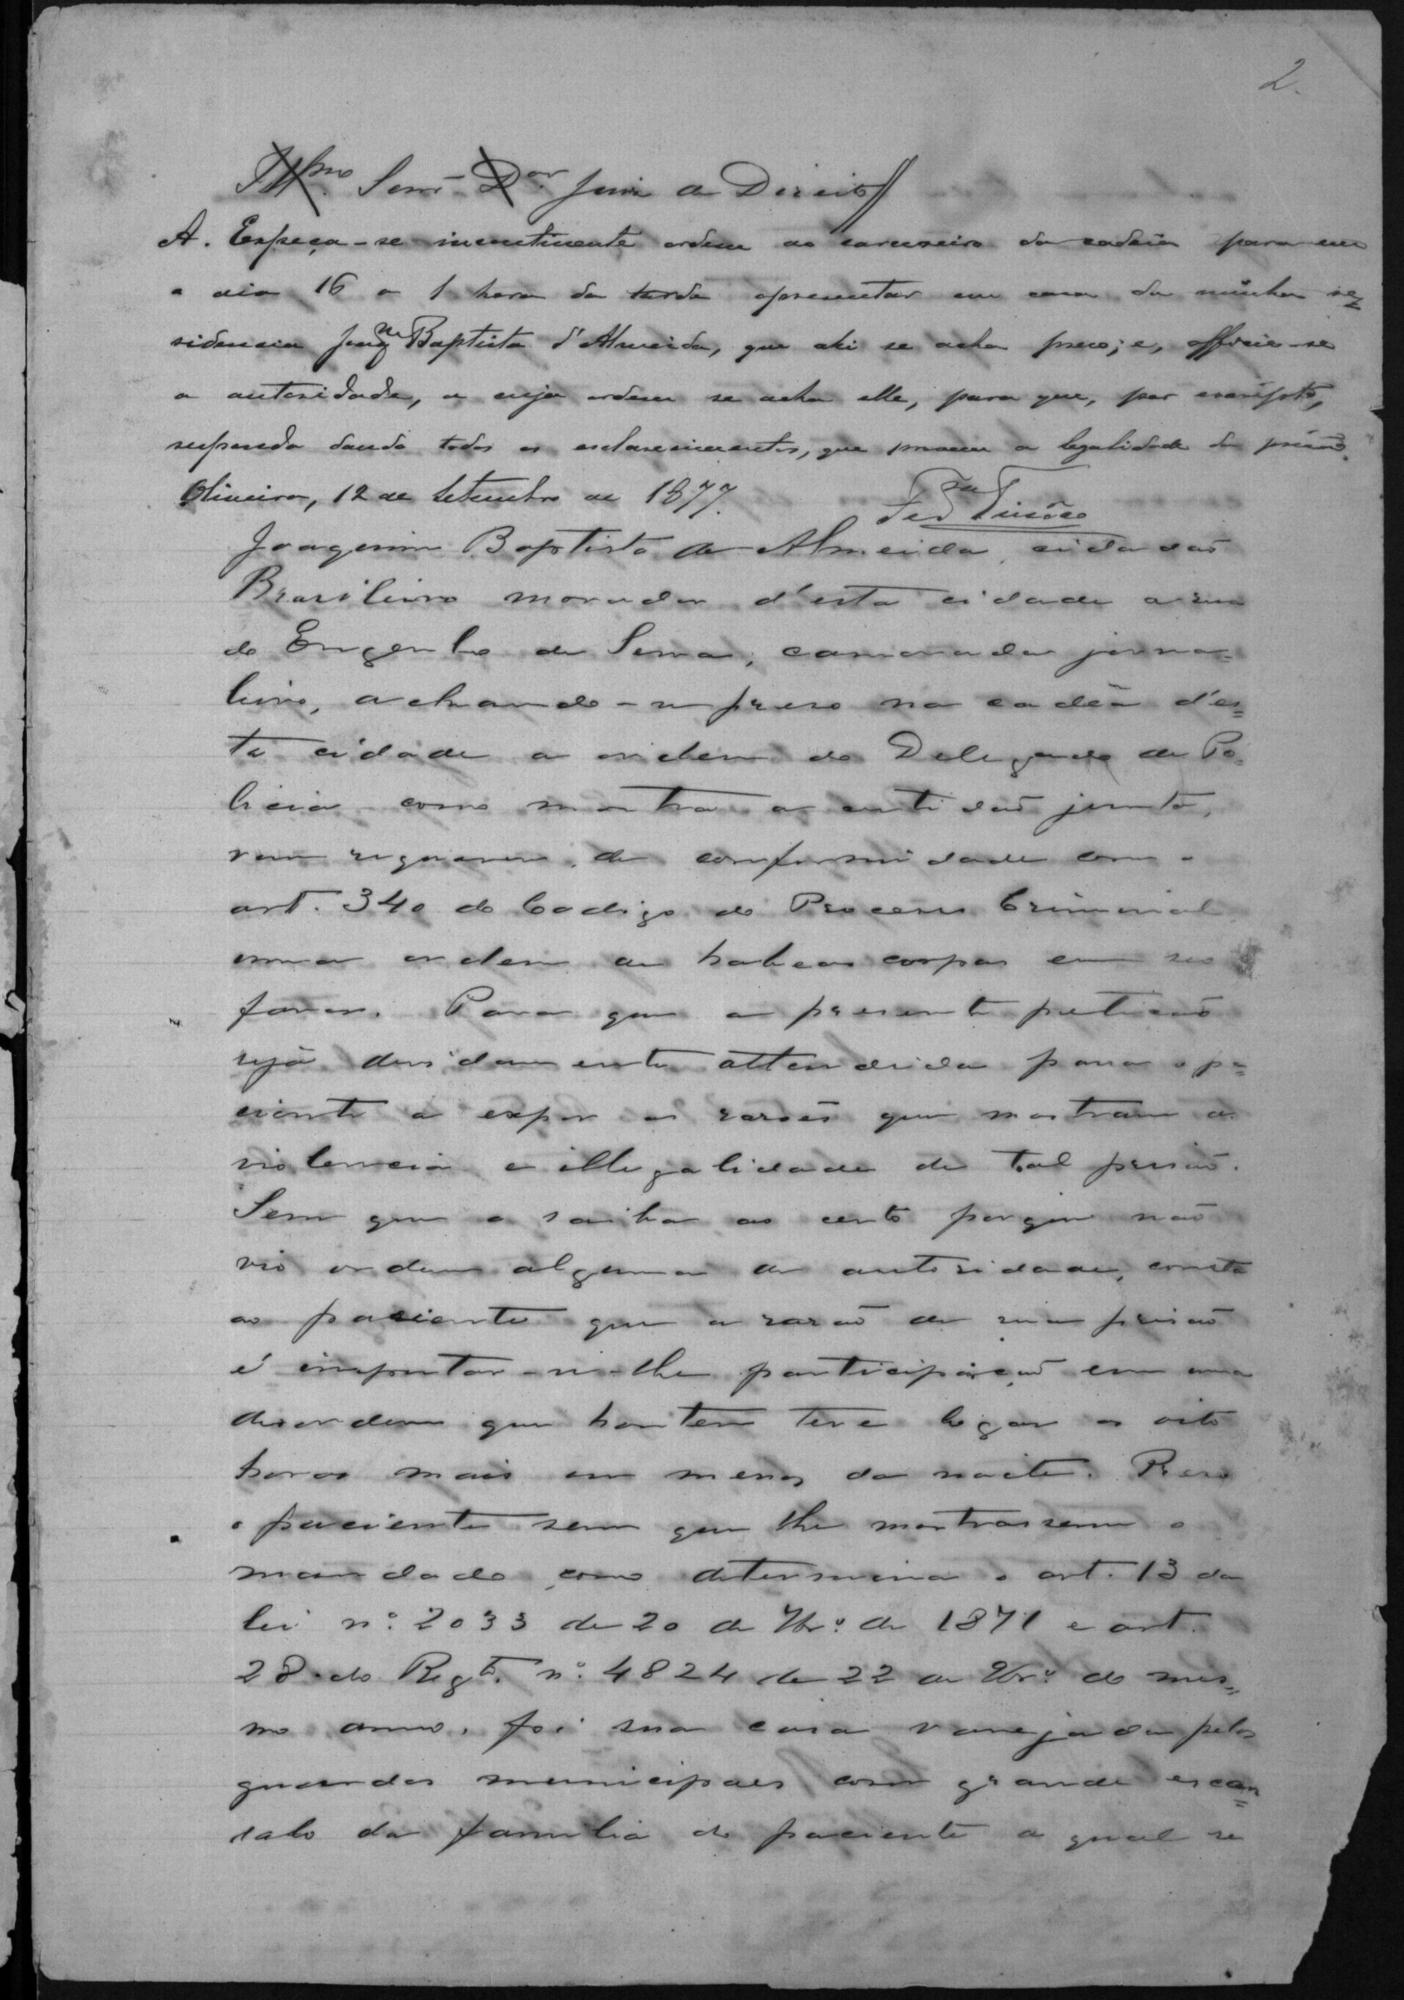 2.
Illmo. Senr. Dor. Juiz de Direito
A. Expeça-se incontinente ordem ao carcereiro da cadeia para em
o dia 16 a 1 hora da tarde apresentar em casa da minha re=
sidencia Joaqm Baptista d'Almeida, que ahi se acha preso; e, officie-se
a autoridade, a cuja ordem se acha elle, para que, por escripto,
responda dando todos os esclarecimentos, que provem a legalidade da prisão.
Oliveira, 12 de Setembro de 1877.
Joaquim Baptista de Almeida, cidadão
Brasileiro morador d'esta cidade a rua
do Engenho de Serra, camarada jorna=
leiro, achando-se preso na cadêa d'es=
ta cidade a ordem do Delegado de Po=
licia como mostra a certidão junta,
vem requerer, de conformidade com o
art. 340 do Codigo do Processo Criminal
uma ordem de habeas corpus em seo
favor. Para que a presente petição
seja devidamente attendida passa o pa=
ciente a expor as rasões que mostram a
violencia e illegalidade de tal prisão.
Sem que o saiba ao certo porque não
vio ordem alguma da autoridade, consta
ao paciente que a rasão de sua prisão
é imputar-se-lhe participação em uma
desordem que hontem teve logar as oito
horas mais ou menos da noite. Preso
o paciente sem que lhe mostrassem o
mandado como determina o art. 13 da
lei nº. 2033 de 20 de 7brº. de 1871 e art.
28 do Regto. nº. 4824 de 22 de 9brº. do mes=
mo anno, foi sua casa varejada pelos
guardas municipaes com grande escan=
dalo da familia do paciente a qual se